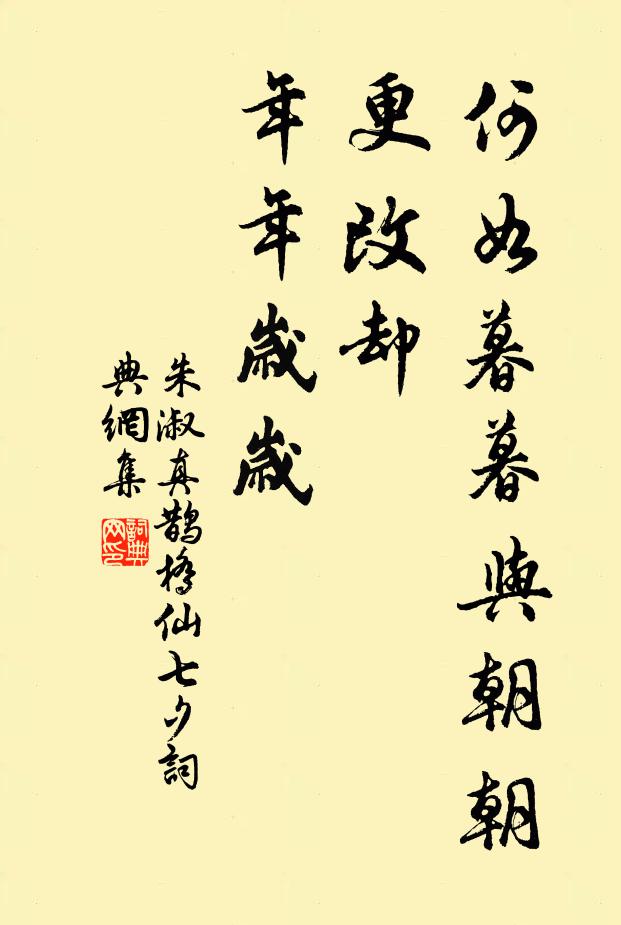 何如暮暮與朝朝
更改却
年年歲歲
朱淑真鵲橋仙七夕詞
典網集
詞典
网印